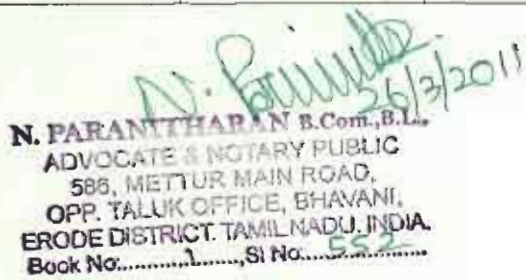 26/3/2011
N. PARANITHARAN B.Com.,B.L.,
ADVOCATE & NOTARY PUBLIC
586, METTUR MAIN ROAD,
OPP. TALUK OFFICE, BHAVANI,
ERODE DISTRICT. TAMIL NADU. INDIA.
Book No:.......1......,Sl No:....552..........